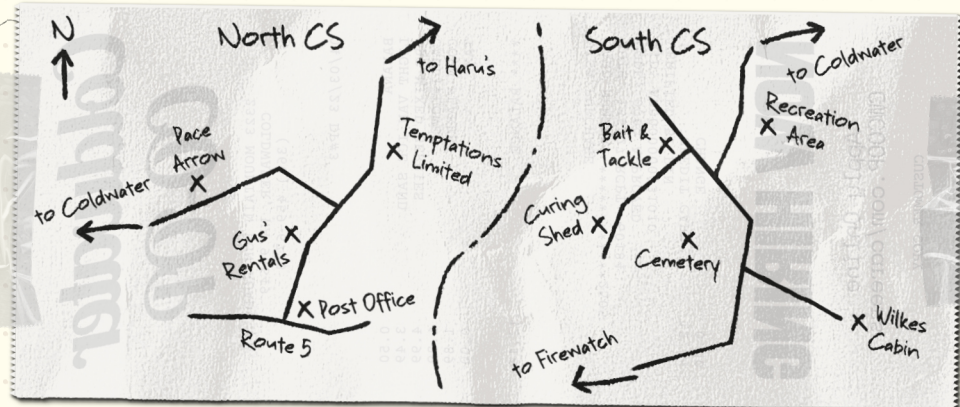 N
North CS
to Haru's
Pace
Arrow
Temptations
Limited
to Coldwater
Gus'
Rentals
Post Office
Route 5
South CS
to Coldwater
Recreation
Area
Bait &
Tackle
Curing
Shed
Cemetery
Wilkes
Cabin
to Firewatch
Coldwater
COOP
NOW HIRING